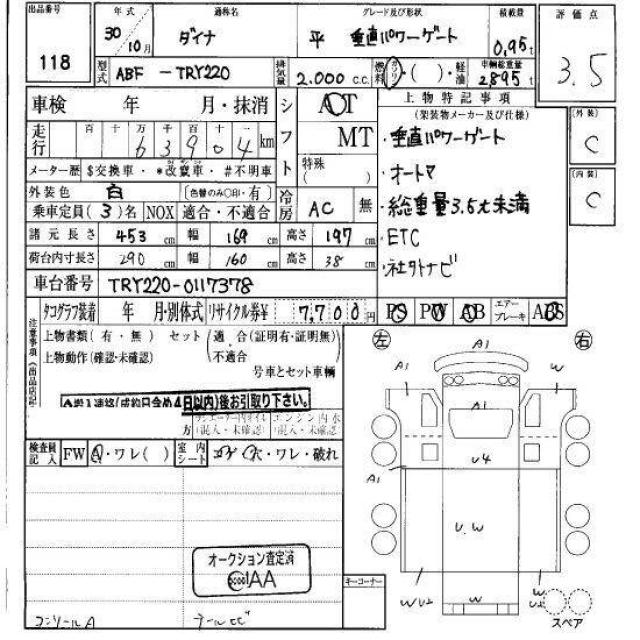 出品番号 年式 通称名 グレード及び形状 積載量 評価点
118 30/10月 ダイナ 平 垂直パワーゲート 0.95t 3.5
型式 ABF - TRY220 排気量 2.000 c.c. 燃料 ガソリン ・( )・ 軽油 車輌総重量 2895t
車検 年 月・抹消 シフト AOT 上物特記事項 (外装)
(架装物メーカー及び仕様) C
走行 百 十 万 千 百 十 一 MT ・垂直パワーゲート
6 3 9 0 4 km
メーター歴 $交換車・*改竄車・#不明車 特殊 ( ) ・オートマ (内装)
外装色 白 (色替のみ○印・有) 冷房 AC 無 ・総重量3.5t未満 C
乗車定員(3)名 NOX 適合・不適合
諸元長さ 453 cm 幅 169 cm 高さ 197 cm ・ETC
荷台内寸長さ 290 cm 幅 160 cm 高さ 38 cm ・社外ナビ
車台番号 TRY220-0117378
タコグラフ装着 年 月・別体式 リサイクル券¥ 7,700円 PS PW AB エアーブレーキ ABS
注意事項(出品店記
上物書類(有・無) セット (適 合(証明有・証明無)
上物動作(確認・未確認) 不適合)
号車とセット車輌
4日以内)後お引取り下さい。
方(混入・未確認) (混入・未確認)
検査員記入 FW A・ワレ( ) 室内シート コゲ・穴・ワレ・破れ
オークション査定済
JAA
コンソールA
キーコーナー
左 右
A1
A1 W
A1
U4
A1
U.W
W
WU2 W U2
スペア